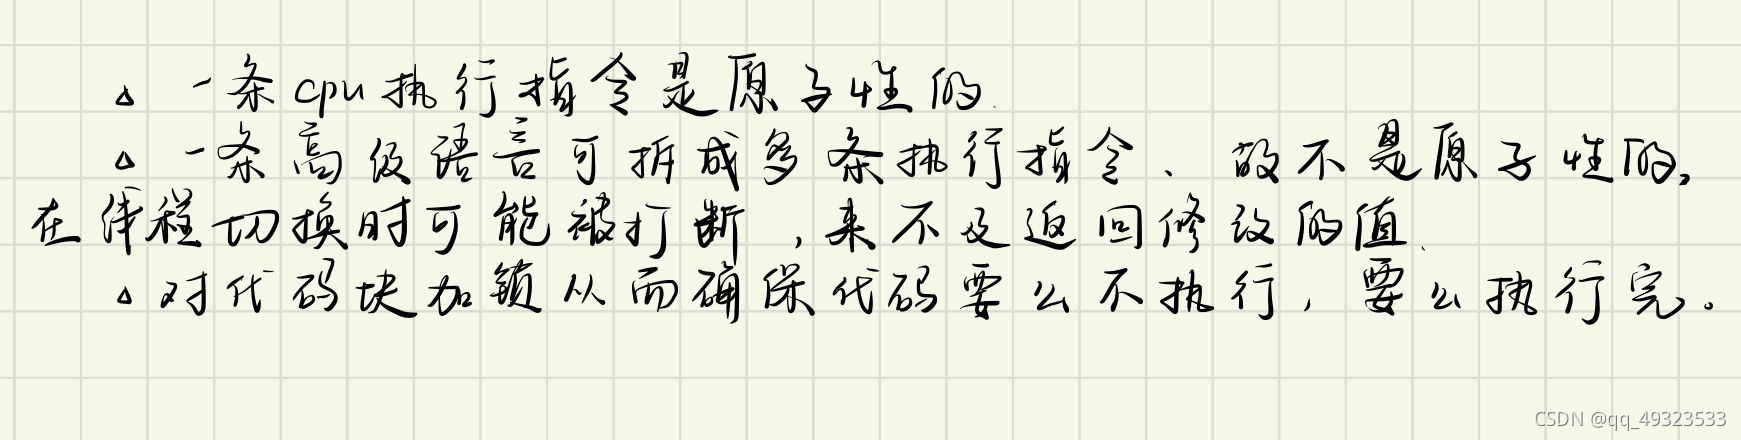 △ 一条cpu执行指令是原子性的.
△ 一条高级语言可拆成多条执行指令、故不是原子性的,
在线程切换时可能被打断,来不及返回修改的值.
△ 对代码块加锁从而确保代码要么不执行,要么执行完。
CSDN @qq_49323533